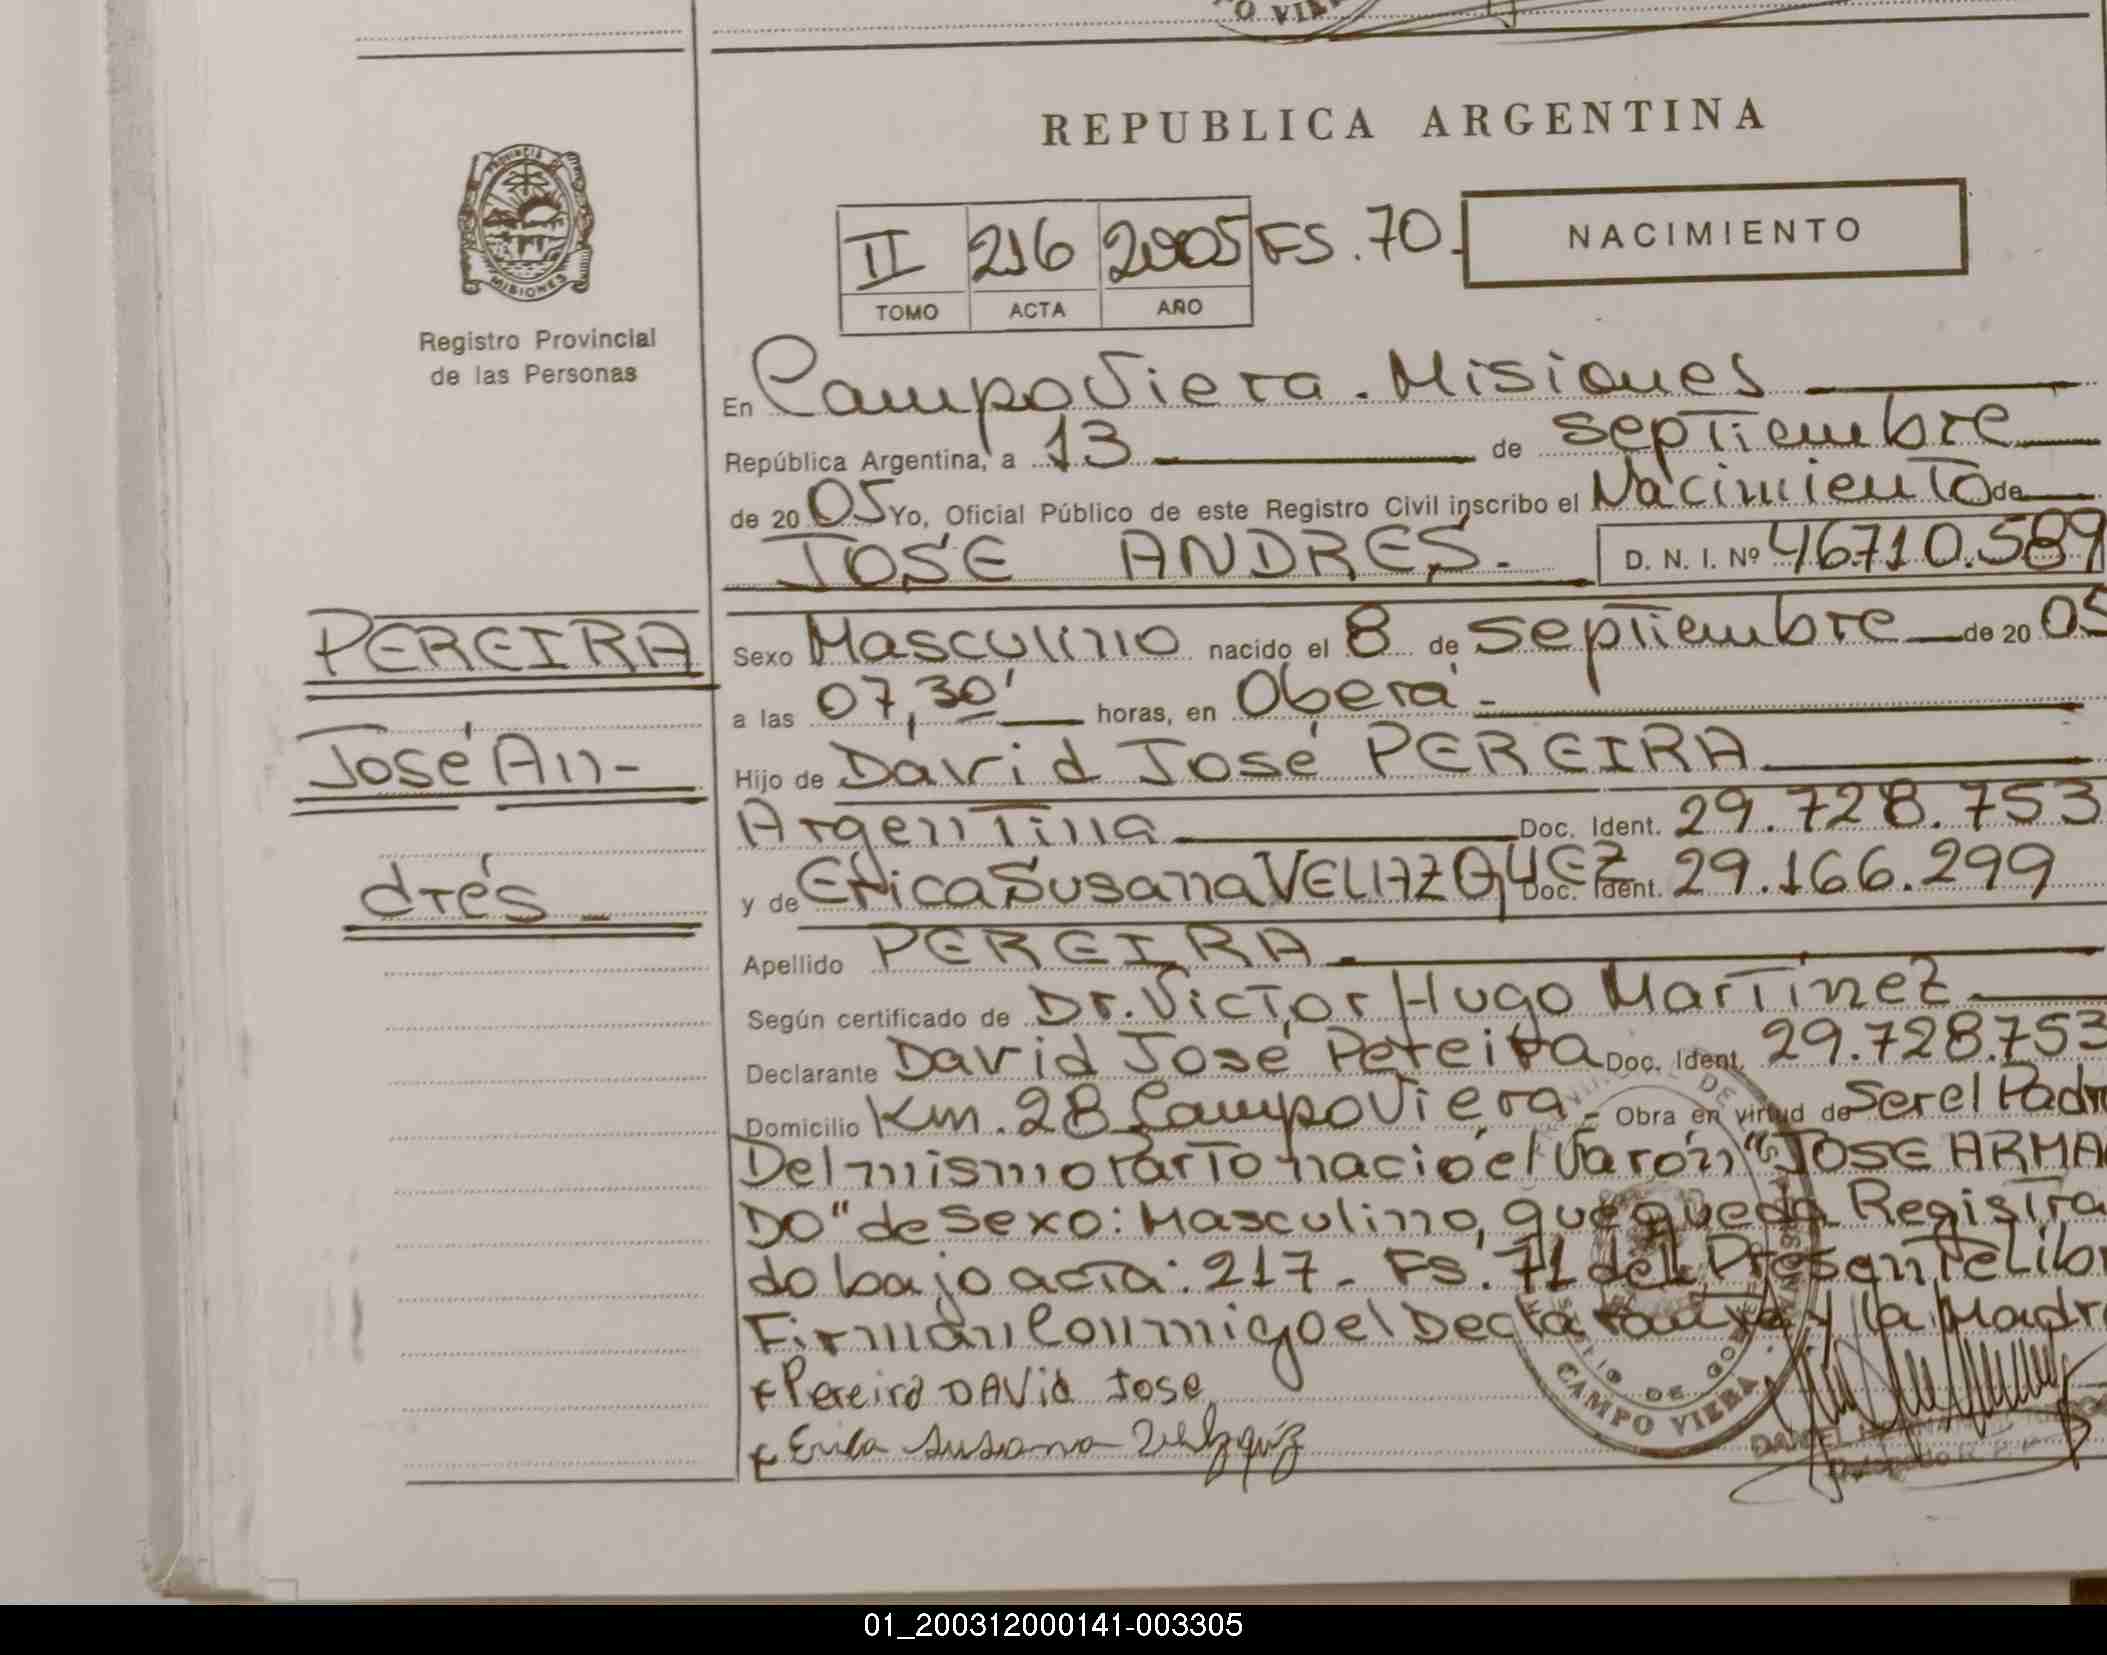 O VIE
REPUBLICA ARGENTINA
PROVINCIA DE
MISIONES
II 216 2005 FS. 70.
NACIMIENTO
TOMO ACTA AÑO
Registro Provincial
de las Personas
En Campo Viera. Misiones
República Argentina, a 13 de septiembre
de 2005 Yo, Oficial Público de este Registro Civil inscribo el Nacimiento de
JOSÉ ANDRÉS. D. N. I. Nº 46.710.589
PEREIRA
Sexo Masculino nacido el 8 de septiembre de 20 05
a las 07,30' horas, en Oberá.
José An-
Hijo de David José PEREIRA
Argentina Doc. Ident. 29.728.753
drés
y de Erica Susana VELAZQUEZ Doc. Ident. 29.166.299
Apellido PEREIRA.
Según certificado de Dr. Victor Hugo Martínez
Declarante David José Pereira Doc. Ident. 29.728.753
Domicilio Km. 28 Campo Viera. Obra en virtud de Ser el Padre
Del mismo Parto nació el Varón "JOSE ARMA
DO" de sexo: Masculino, que queda Registra
do bajo acta: 217 - Fs. 71 del Presente Libr
Firman Conmigo el Declarante y la Madre
Pereira DAVid Jose
Erica Susana Velazquez
CAMPO VIERA
01_200312000141-003305